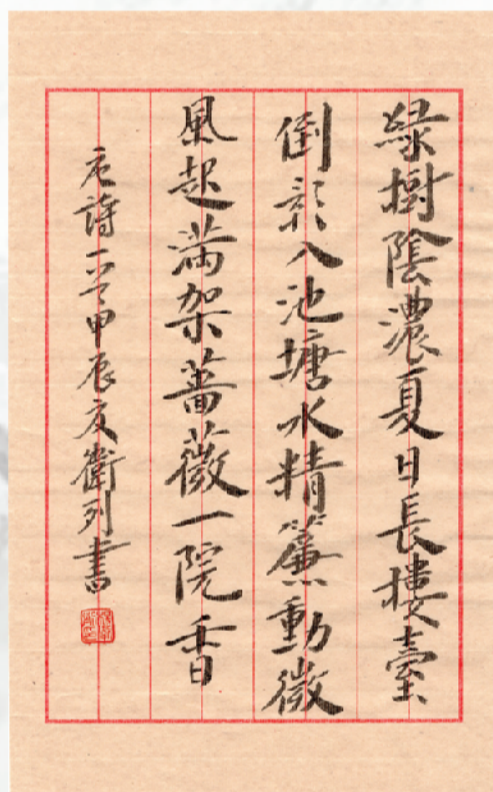 緑樹陰濃夏日長樓臺
倒影入池塘水精簾動微
風起滿架薔薇一院香
唐詩一首甲辰友衛列書